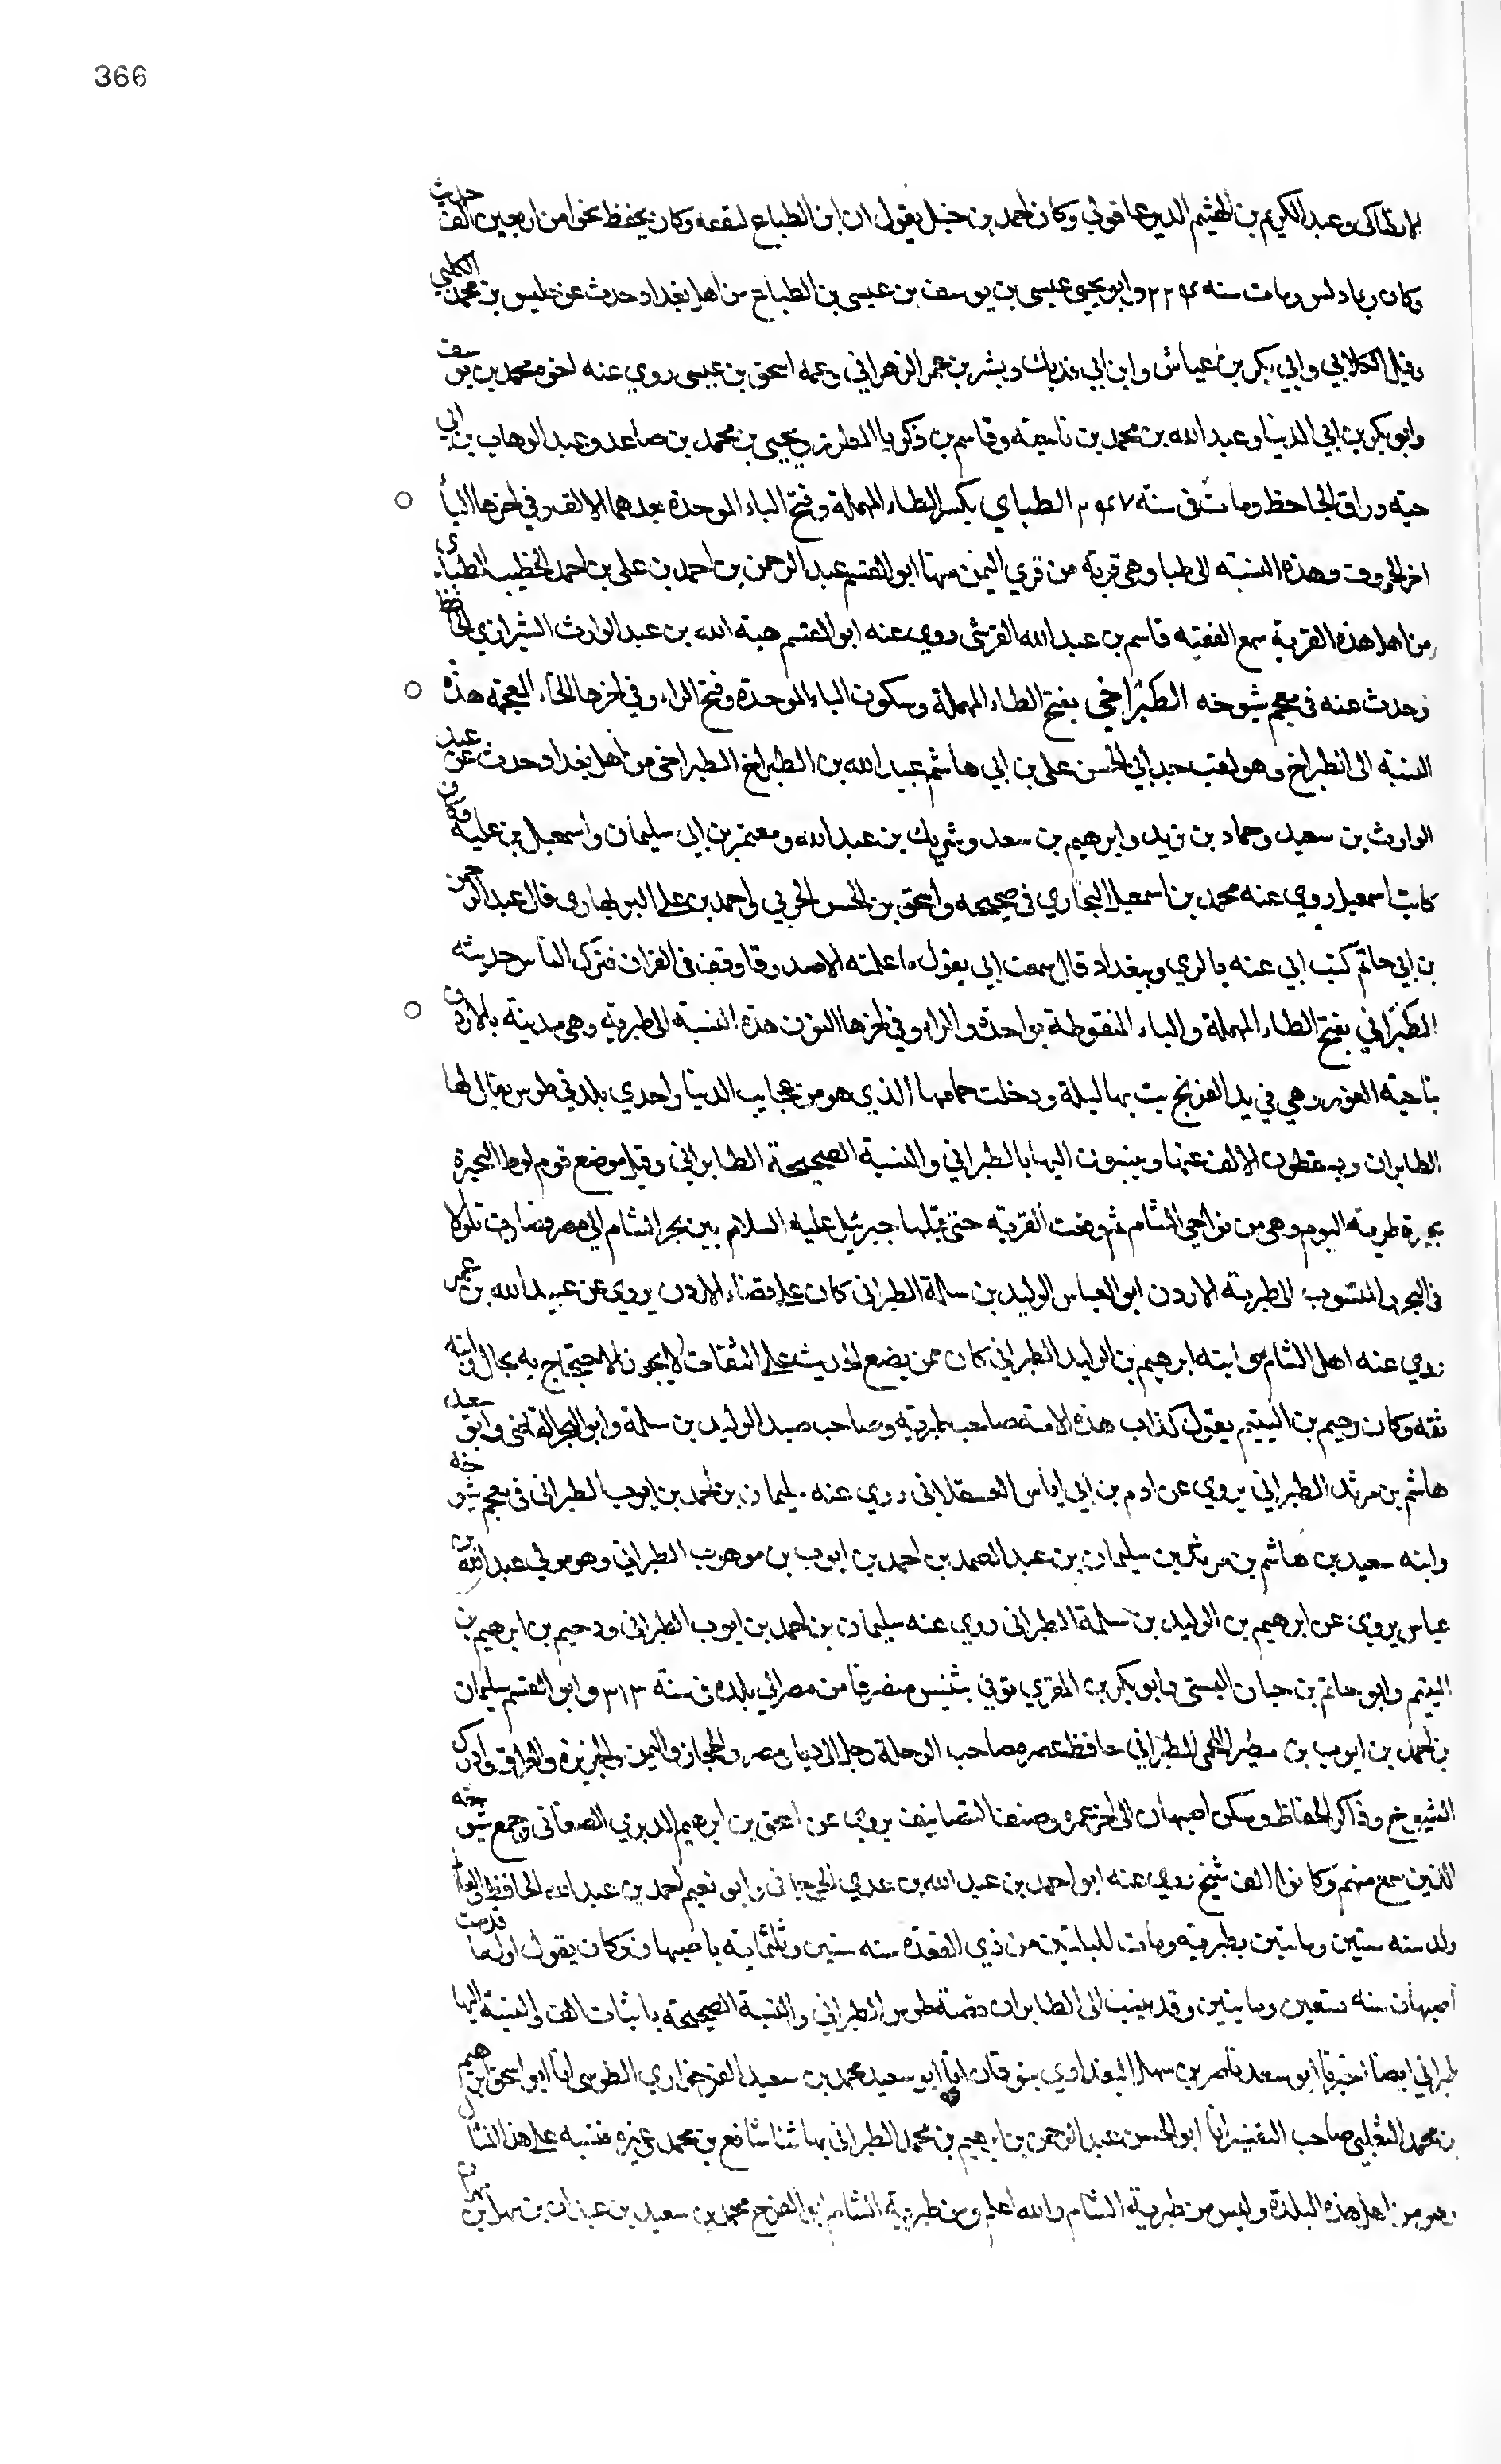 366
الانطاكى وعبد الكريم بن الهثيم الديرعاقولي وكان احمد بن حنبل يقول ان ابن الطباع لثقه وكان يحفظ نحوا من اربعين الف حديث
وكان ربما دلس ومات سنه ٢٢٤ وابو يحيى عيسى بن يوسف بن عيسى بن الطباع من اهل بغداد حدث عن حلبس بن محمد الكلبي
وقيل الكلابي وابي بكر بن عياش وابن ابي فديك وبشر بن عمر الزهراني وعمه اسحق بن عيسى روي عنه اخوه محمد بن يوسف
وابو بكر بن ابي الدنيا وعبد الله بن محمد بن ناجية وقاسم بن زكريا المطرز ويحيى بن محمد بن صاعد وعبد الوهاب بن ابي
حيه وراق الجاحظ ومات فى سنة ٢٤٧ الطبايي بكسر الطاء المهملة وفتح الباء الموحدة بعدهما الالف وفي اخرها اليا
اخر الحروف وهذه النسبة الى طبا وهى قرية من قري اليمن منها ابو القسم عبد الرحمن بن احمد بن على بن احمد الخطيب الطبايي
من اهل هذه القرية سمع الفقيه قاسم بن عبد الله القرشى روي عنه ابو القسم هبة الله بن عبد الوارث الشيرازي الحافظ
وحدث عنه فى معجم شيوخه الطبراخي بفتح الطاء المهملة وسكون الباء الموحدة وفتح الراء وفي اخرها الخاء المعجمة هذه
النسبة الى الطبراخ وهو لقب جد ابي الحسن على بن ابي هاشم عبيد الله بن الطبراخ الطبراخى من اهل بغداد حدث عن عبد
الوارث بن سعيد وحماد بن زيد وابرهيم بن سعد وشريك بن عبد الله ومعتمر بن ابى سليمان واسمعيل بن علية وكان
كاتب اسمعيل روي عنه محمد بن اسمعيل البخاري فى صحيحه واسحق بن الحسن الحربي واحمد بن على البربهاري قال عبد الرحمن
بن ابي حاتم كتب ابي عنه بالري وببغداد قال سمعت ابي يقول ما علمته الا صدوقا وقف فى القران فترك الناس حديثه
الطبراني بفتح الطاء المهملة والباء المنقوطة بواحدة والراء وفي اخرها النون هذه النسبة الى طبرية وهى مدينة بالاردن
بناحية الغور وهي في يد الفرنج بت بها ليلة ودخلت حمامها الذي هو من عجايب الدنيا واحدي بلدتي طوس يقال لها
الطابران ويسقطون الالف عنها وينسبون اليها بالطبراني والنسبة الصحيحة الطابراني وقيل موضع قوم لوط البحيرة
بحيرة طبرية اليوم وهى من نواحي الشام ثم رفعت القرية حتى قبلها جبرئيل عليه السلام بين بحر الشام الى مصر فصارت تلولا
فى البحر والمنسوب الى طبرية الاردن ابو العباس الوليد بن سلمة الطبرانى كان على قضاء الاردن يروي عن عبيد الله بن عمر
روي عنه اهل الشام سوى ابنه ابرهيم بن الوليد الطبراني كان ممن يضع الحديث على الثقات لا يجوز الاحتجاج به بحال وابنه
ثقه وكان دحيم بن اليتيم يقول كذاب هذه الامة صاحب طبرية وصاحب صيدا الوليد بن سلمة وابو البحتري القاضى وابو سعيد
هاشم بن مرثد الطبراني يروي عن ادم بن ابي اياس العسقلانى روي عنه سليمان بن احمد بن ايوب الطبرانى فى معجم شيوخه
وابنه سعيد بن هاشم بن مرثد بن سليمان بن عبد الصمد بن احمد بن ايوب بن موهوب الطبراني وهو مولي عبد الله بن
عباس يروي عن ابرهيم بن الوليد بن سلمة الطبرانى روي عنه سليمان بن احمد بن ايوب الطبرانى ودحيم بن ابرهيم بن
اليتيم وابو حاتم بن حبان البستى وابو بكر بن المقري توفي بتنيس منصرفا من مصر الي بلده فى سنة ٣١٣ وابو القسم سليمان
بن احمد بن ايوب بن مطير اللخمى الطبراني حافظ عصره صاحب الرحلة رحل الى ديار مصر والحجاز واليمن والجزيرة والعراق وادرك
الشيوخ وذاكر الحفاظ وسكن اصبهان الى اخر عمره وصنف التصانيف يروي عن اسحق بن ابرهيم الدبري الصنعانى وجمع شيوخه
الذين سمع منهم وكانوا الف شيخ روي عنه ابو احمد بن عبد الله بن عدي الجرجانى وابو نعيم احمد بن عبد الله الحافظ والعالم
ولد سنه ستين وماتين بطبرية ومات لليلتين من ذي القعدة سنه ستين وثلثماية باصبهان وكان يقول اول ما قدمت
اصبهان سنه تسعين وماتين وقد ينسب الى الطابران قصبة طوس الطبراني والنسبة الصحيحة باثبات الف والنسبة اليها
طبراني ايضا اخبرنا ابو سعد ناصر بن سهل البغدادي بنوقان انا ابو سعيد محمد بن سعيد الفرخزاري الطوسى انا ابو اسحق ابرهيم
بن محمد الثعلبى صاحب التفسير انا ابو الحسن عبد الرحمن بن ابرهيم بن محمد الطبرانى بها ثنا شافع بن محمد وغيره فنسبه على هذا المثال
وهو من اهل هذه البلدة وليس من طبرية الشام والله اعلم ومن طبرية الشام ابو الفرج محمد بن سعيد بن عبدان بن سهلان بن